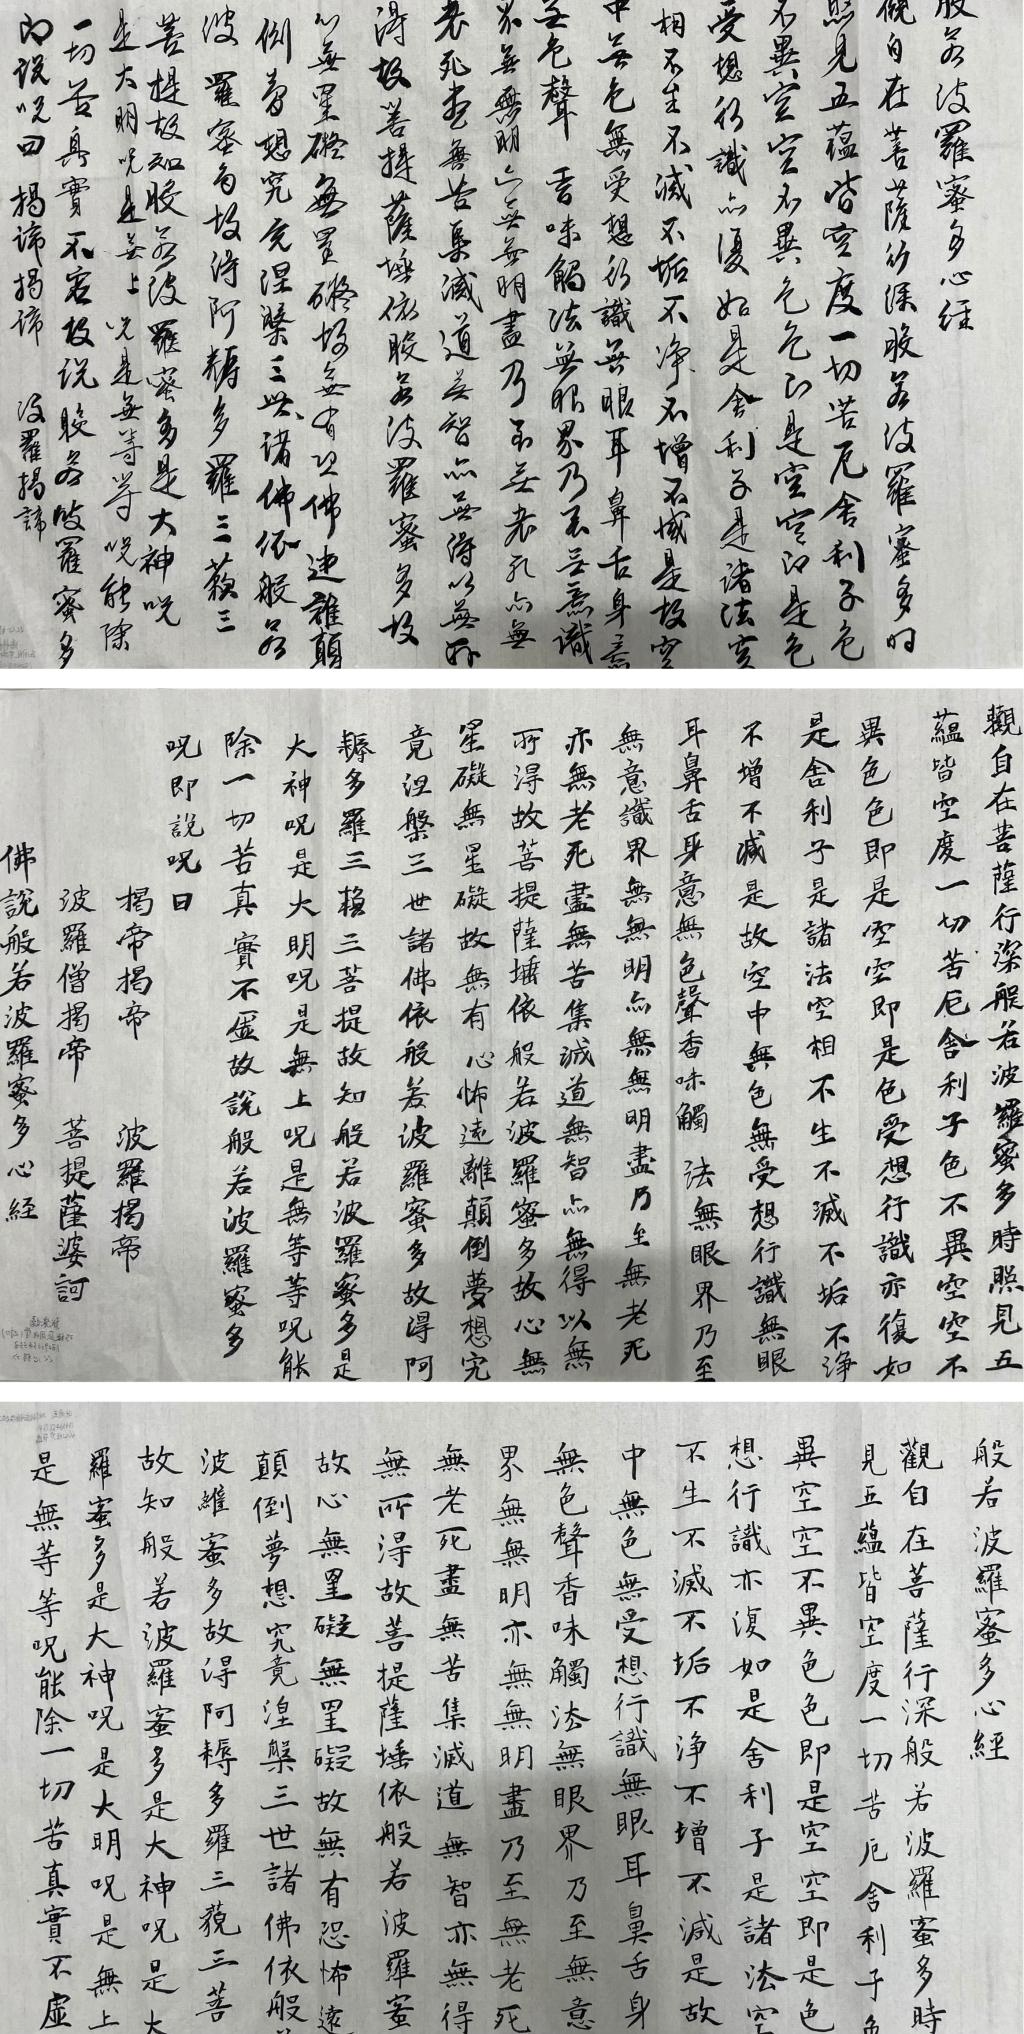 般若波羅蜜多心経
観自在菩薩行深般若波羅蜜多时
照見五蘊皆空度一切苦厄舍利子色
不異空空不異色色即是空空即是色
受想行識亦復如是舍利子是諸法空
相不生不滅不垢不净不增不減是故空
中無色無受想行識無眼耳鼻舌身意
無色聲香味觸法無眼界乃至無意識
界無無明亦無無明盡乃至無老死亦無
老死盡無苦集滅道無智亦無得以無所
得故菩提薩埵依般若波羅蜜多故
心無罣礙無罣礙故無有恐怖遠離顛
倒夢想究竟涅槃三世諸佛依般若
波羅蜜多故得阿耨多羅三藐三
菩提故知般若波羅蜜多是大神呪
是大明呪是無上呪是無等等呪能除
一切苦真實不虛故說般若波羅蜜多
即說呪曰 揭諦揭諦 波羅揭諦
觀自在菩薩行深般若波羅蜜多時照見五
蘊皆空度一切苦厄舍利子色不異空空不
異色色即是空空即是色受想行識亦復如
是舍利子是諸法空相不生不滅不垢不淨
不增不減是故空中無色無受想行識無眼
耳鼻舌身意無色聲香味觸 法無眼界乃至
無意識界無無明亦無無明盡乃至無老死
亦無老死盡無苦集滅道無智亦無得以無
所得故菩提薩埵依般若波羅蜜多故心無
罣礙無罣礙故無有心怖遠離顛倒夢想究
竟涅槃三世諸佛依般若波羅蜜多故得阿
耨多羅三藐三菩提故知般若波羅蜜多是
大神呪是大明呪是無上呪是無等等呪能
除一切苦真實不虛故說般若波羅蜜多
呪即說呪曰
揭帝揭帝 波羅揭帝
波羅僧揭帝 菩提薩婆訶
佛說般若波羅蜜多心経
般若波羅蜜多心經
觀自在菩薩行深般若波羅蜜多時
見五蘊皆空度一切苦厄舍利子色
異空空不異色色即是空空即是色
想行識亦復如是舍利子是諸法空
不生不滅不垢不淨不增不減是故
中無色無受想行識無眼耳鼻舌身
無色聲香味觸法無眼界乃至無意
界無無明亦無無明盡乃至無老死
無老死盡無苦集滅道 無智亦無得
無所得故菩提薩埵依般若波羅蜜
故心無罣礙無罣礙故無有恐怖遠
顛倒夢想究竟涅槃三世諸佛依般若
波羅蜜多故得阿耨多羅三藐三菩
故知般若波羅蜜多是大神呪是大
羅蜜多是大神呪是大明呪是無上
是無等等呪能除一切苦真實不虛